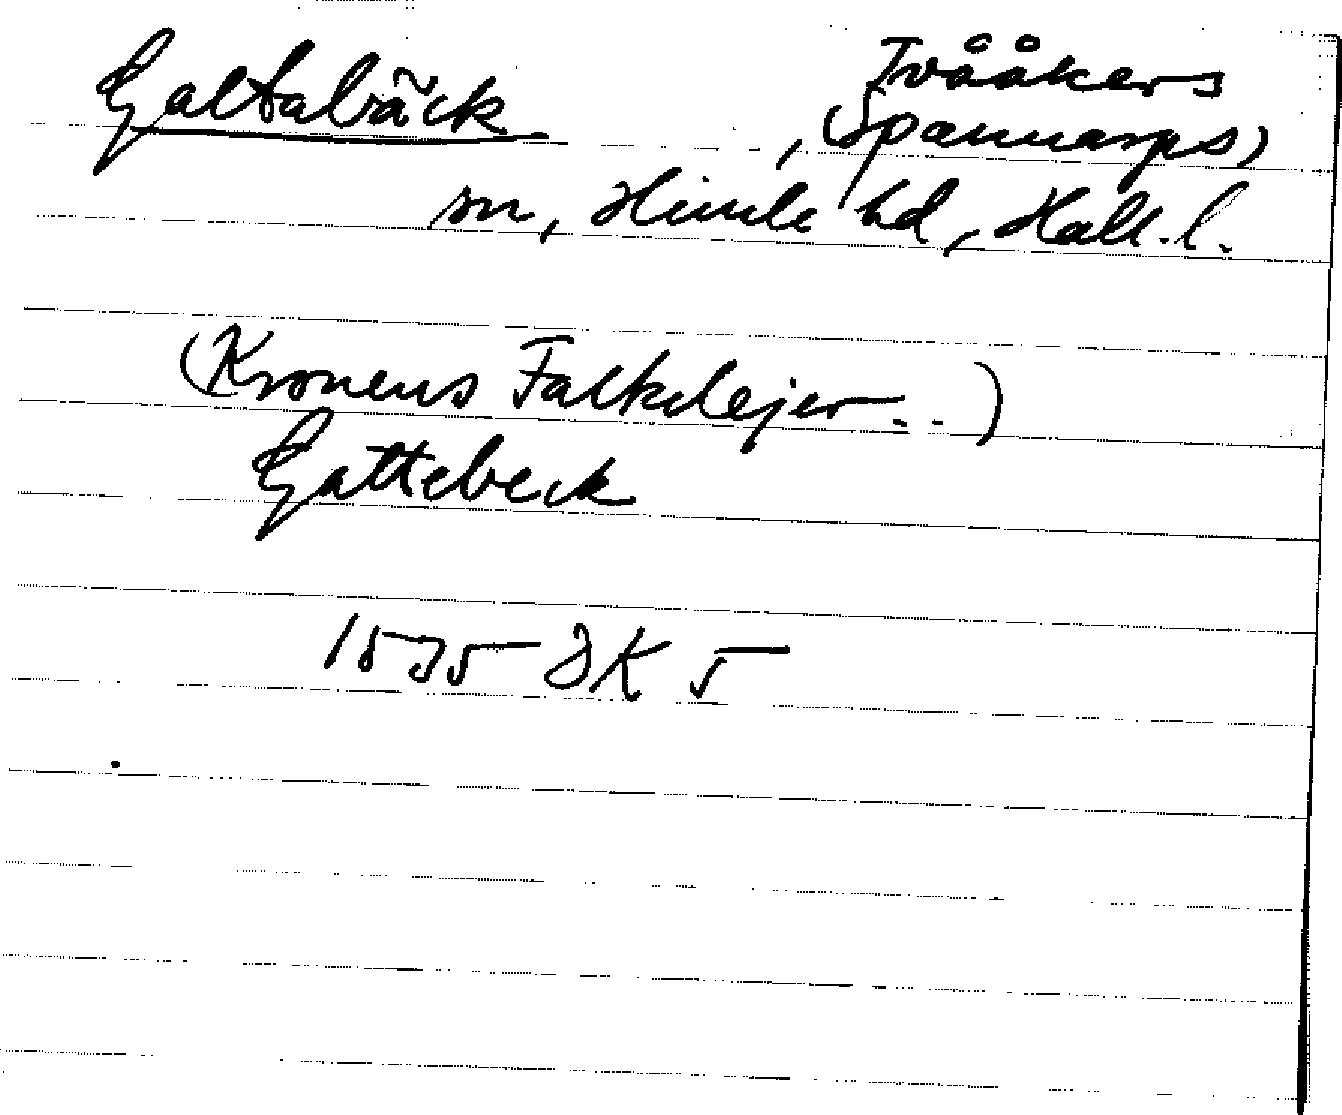 Galtabäck
Tvååkers
, (Spannarps)
sn, Himle hd, Hall. l.
(Kronens Falkelejer - - )
Gattebeck
1575 JK 5